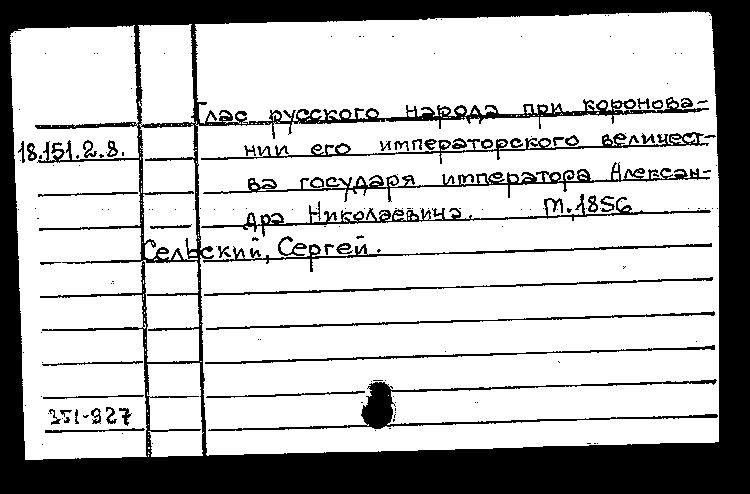 Глас русского народа при коронова-
18.151.2.8. нии его императорского величест-
ва государя императора Алексан-
дра Николаевича. М.,1856
Сельский, Сергей.
351-927